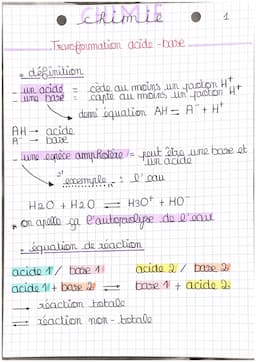 CHIMIE
chimie 1
Transformation acide-base
• définition
- un acide = cède au moins un proton H⁺
- une base = capte au moins un proton H⁺
demi équation AH = A⁻ + H⁺
AH → acide
A⁻ → base
- une espèce amphotère = peut être une base et un acide
exemple : l'eau
H2O + H2O ⇌ H3O⁺ + HO⁻
* on apelle ça l'autoprotolyse de l'eau
• équation de réaction
acide 1 / base 1 acide 2 / base 2
acide 1 + base 2 ⇌ base 1 + acide 2
→ réaction totale
⇌ réaction non-totale